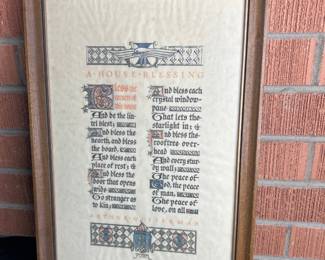 A · HOUSE · BLESSING
Bless the
corners of
this house
And be the lin-
tel blest;
And bless the
hearth, and bless
the board,
And bless each
place of rest;
And bless the
door that opens
wide
To stranger as
to kin;
And bless each
crystal window-
pane
That lets the
starlight in;
And bless the
rooftree over-
head
And every sturdy
wall;
The peace of
God, the peace
of man,
The peace of
love, on all
ARTHUR GUITERMAN